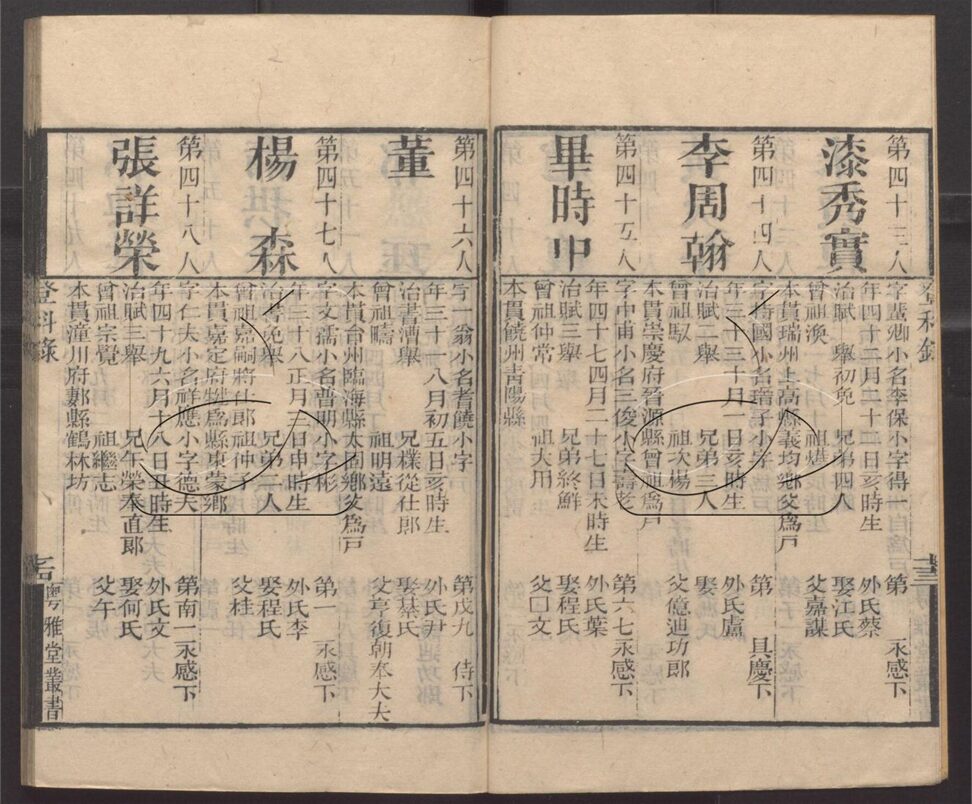 第四十三人
漆秀實
字蓋卿小名李保小字得一 第
年四十二月二十二日亥時生 外氏蔡
治賦 舉初免 兄弟四人 娶江氏
曾祖渙 祖 父嘉謀
本貫瑞州上高縣義均鄉父爲戶
第四十四人
李周翰
字 國小名瑞子小字 第 具慶下
年三十三十月一日亥時生 外氏盧
治賦二舉 兄弟三人 娶
曾祖馭 祖次場 父億迪功郎
本貫崇慶府晉源縣曾祖爲戶
第四十五人
畢時中
字中甫小名三俊小字壽老 第六七 永感下
年四十七四月二十七日未時生 外氏葉
治賦三舉 兄弟終鮮 娶程氏
曾祖仲常 祖大用 父口文
本貫饒州青陽縣
登科錄
第四十六人
董
字一翁小名耆饒小字 第戊九 侍下
年三十一八月初五日亥時生 外氏尹
治書漕舉 兄樸從仕郎 娶綦氏
曾祖疇 祖明遠 父亨復朝奉大夫
本貫台州臨海縣太固鄉父爲戶
第四十七人
楊森
字文孺小名普明小字彬 第一 永感下
年三十八正月三日申時生 外氏李
治 免舉 兄弟二人 娶程氏
曾祖嘉嗣將仕郎 祖仲 父桂
本貫嘉定府犍爲縣東蒙鄉
第四十八人
張詳榮
字仁夫小名祥應小字德夫 第南一 永感下
年四十九六月十八日丑時生 外氏文
治賦三舉 兄午榮奉直郎 娶何氏
曾祖宗覺 祖繼志 父午
本貫潼川府郪縣鶴林坊
登科錄 粤雅堂叢書